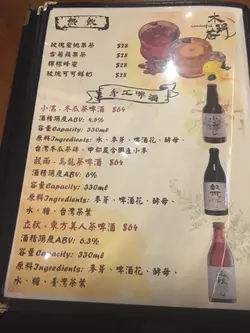 熱飲
玫瑰蜜桃果茶 $28
雪菊蘋果茶 $28
檸檬蜂蜜 $28
玫瑰可可鮮奶 $28
手工啤酒
小滿·冬瓜茶啤酒 $64
酒精濃度ABV: 4.8%
容量Capacity: 330ml
原料Ingredients: 水、麥芽、啤酒花、酵母、
台灣冬瓜茶磚、中都農會興產小麥
穀雨·烏龍茶啤酒 $64
酒精濃度ABV: 6%
容量Capacity: 330ml
原料Ingredients: 麥芽、啤酒花、酵母、
水、糖、台灣茶葉
立秋·東方美人茶啤酒 $64
酒精濃度ABV: 6.3%
容量Capacity: 330ml
原料Ingredients: 麥芽、啤酒花、酵母、
水、糖、臺灣茶葉